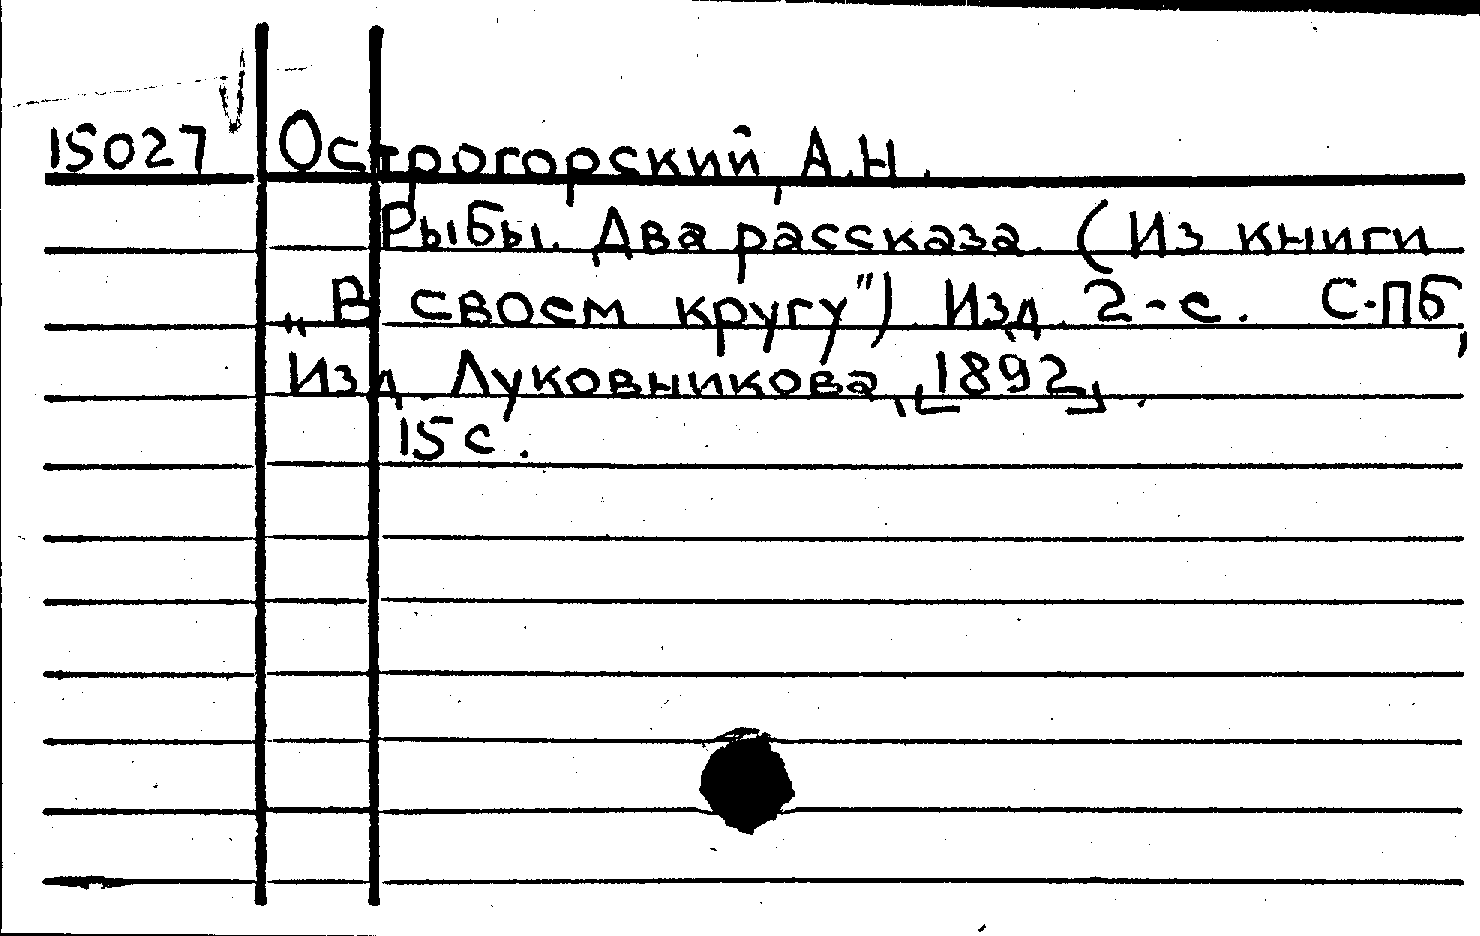 15027 Острогорский, А.Н.
Рыбы. Два рассказа. (Из книги
„В своем кругу") Изд. 2-е. С-Пб,
Изд. Луковникова, [1892].
15 с.